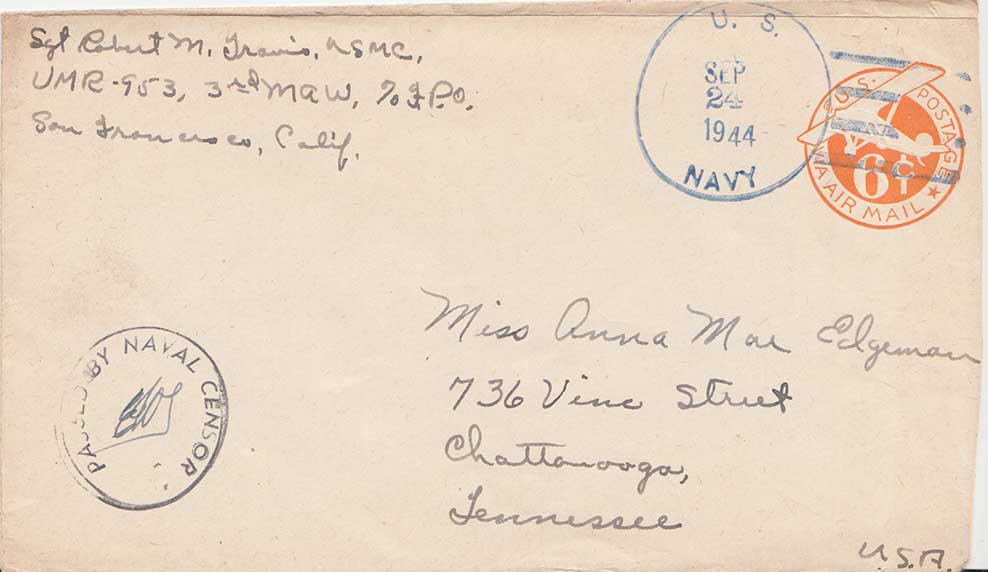 Sgt Robert M. Travis, USMC,
VMR-953, 3rd MAW, % F.P.O.
San Francisco, Calif.
U. S.
SEP
24
1944
NAVY
U.S. POSTAGE
6¢
VIA AIR MAIL
Miss Anna Mae Edgeman
736 Vine Street
Chattanooga,
Tennessee
U.S.A.
PASSED BY NAVAL CENSOR